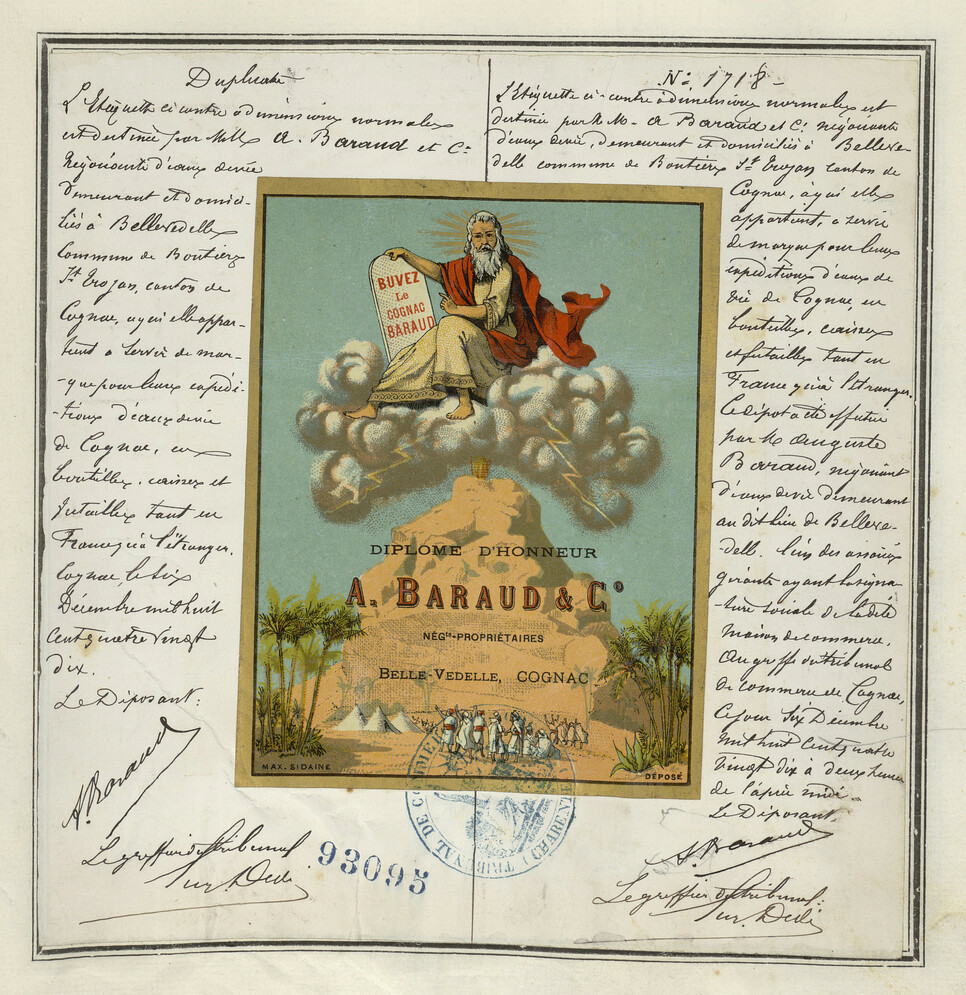 Duplicata
L'Etiquette ci contre à dimensions normales
est destinée par MM A. Baraud et Cie
Négociants d'eaux devie
Demeurant et domici-
liés à Bellevedelle
Commune de Boutiers
St Trojan, canton de
Cognac, à qui elle appar-
tient a servir de mar-
-que pour leurs expédi-
-tions d'eaux devie
de Cognac, en
bouteilles, caisses et
futailles tant en
France qu'à l'étranger.
Cognac, le six
Décembre mil huit
cent quatre vingt
dix.
Le Déposant:
A. Baraud
Le greffier du tribunal
93095
No: 1718
L'Etiquette ci-contre à dimensions normales est
destinée par MM. A Baraud et Cie négociants
d'eaux devie, demeurant et domiciliés à Belleve-
delle commune de Boutiers St Trojan canton de
Cognac, à qui elle
appartient, a servir
de marque pour leurs
expéditions d'eaux de
vie de Cognac en
bouteilles, caisses
et futailles tant en
France qu'à l'étranger.
Le dépot a été effectué
par M Auguste
Baraud, négociant
d'eaux devie demeurant
au dit lieu de Belleve-
-delle. l'un des associés
gérants ayant la signa-
-ture sociale de la dite
maison de commerce.
Au greffe du tribunal
de commerce de Cognac,
Ce jour Six Décembre
mil huit cent quatre
vingt dix à deux heures
de l'après midi.
Le Déposant
A. Baraud
Le greffier du tribunal:
BUVEZ
Le
COGNAC
BARAUD
DIPLOME D'HONNEUR
A. BARAUD & Co
NÉGts-PROPRIÉTAIRES
BELLE-VEDELLE, COGNAC
MAX. SIDAINE
DÉPOSÉ
TRIBUNAL DE COMMERCE
(CHARENTE)